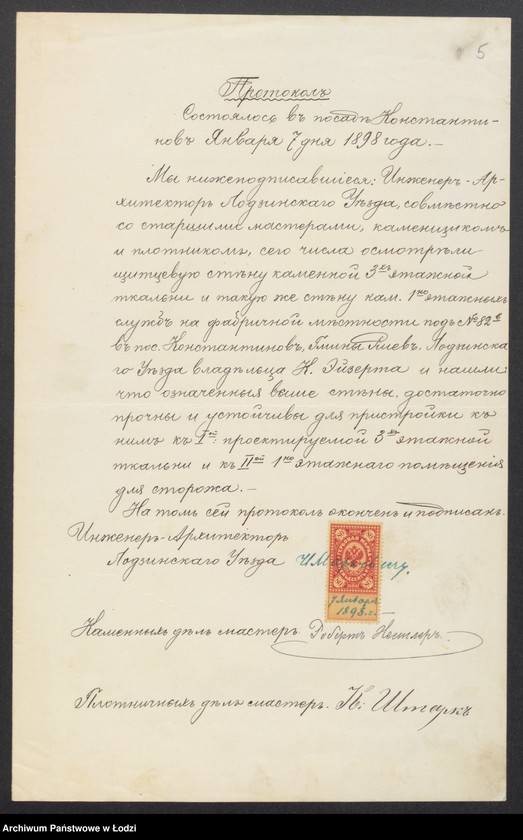 5
Протоколъ
Состоялось въ посадѣ Константи-
новъ Января 7 дня 1898 года. –
Мы нижеподписавшіеся: Инженер-Ар-
хитекторъ Лодзинскаго Уѣзда, совмѣстно
со старшими мастерами, каменщикомъ
и плотникомъ, сего числа осмотрѣли
щитцевую стѣну каменной 3хъ этажной
ткальни и такую же стѣну кам. 1но этажныхъ
службъ на фабричной мѣстности подъ № 82
въ пос. Константиновъ, Гмины Лодзинска
го Уѣзда владѣльца К. Эйзерта и нашли
что означенныя выше стѣны, достаточно
прочны и устойчивы для пристройки къ
нимъ къ I-ой: проектируемой 3хъ этажной
ткальни и къ II-ой 1но этажнаго помѣщенія
для сторожа. –
На томъ сей протоколъ оконченъ и подписанъ.
Инженеръ-Архитекторъ
Лодзинскаго Уѣзда
7 Января
1898 г.
Каменныхъ дѣлъ мастеръ Робертъ Неллеръ.
Плотничныхъ дѣлъ мастеръ. Штаркъ
Archiwum Państwowe w Łodzi